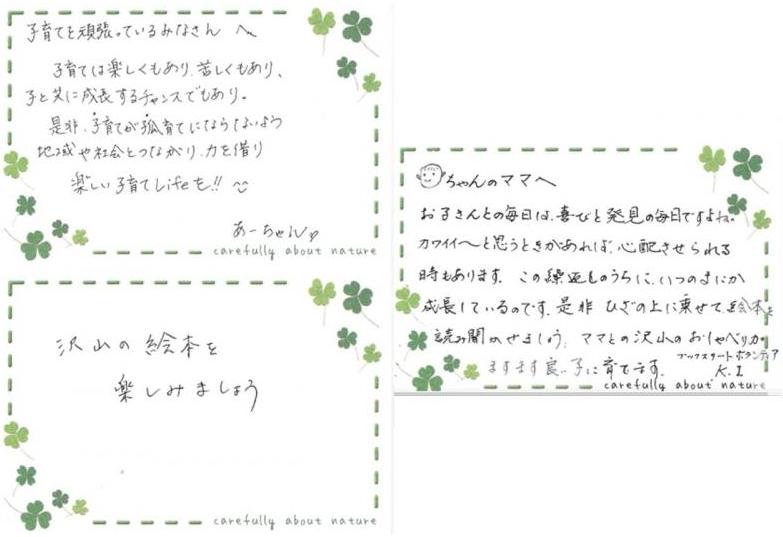 子育てを頑張っているみなさん へ
子育ては楽しくもあり、苦しくもあり、
子と共に成長するチャンスでもあり。
是非、子育てが孤育てにならないよう
地域や社会とつながり、力を借り
楽しい子育てLifeを!!
あーちゃん
carefully about nature
沢山の絵本を
楽しみましょう
carefully about nature
ちゃんのママへ
お子さんとの毎日は、喜びと発見の毎日ですよね。
カワイイ〜と思うときがあれば、心配させられる
時もあります。この繰返しのうちに、いつのまにか
成長しているのです。是非 ひざの上に乗せて、絵本を
読み聞かせましょう。ママとの沢山のおしゃべりが
ますます良い子に育てます。
ブックスタートボランティア
K.I
carefully about nature